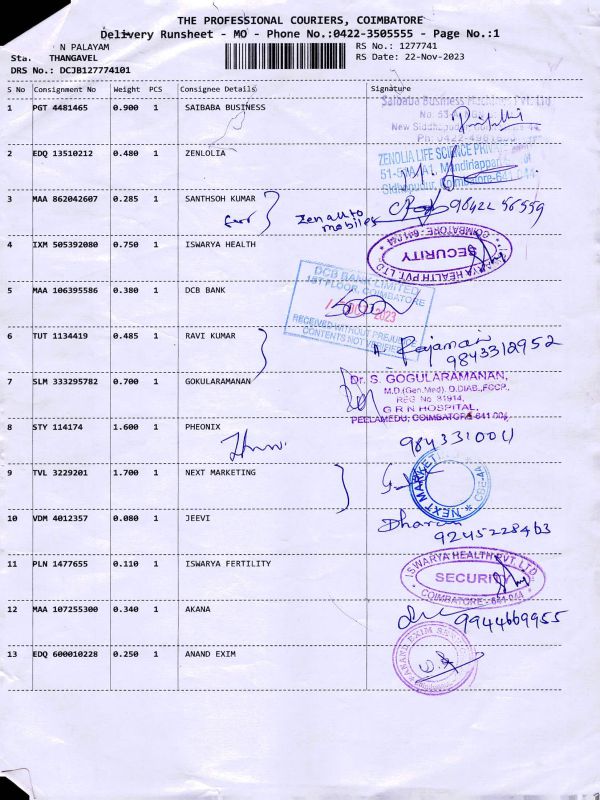 THE PROFESSIONAL COURIERS, COIMBATORE
Delivery Runsheet - MO - Phone No.:0422-3505555 - Page No.:1
N PALAYAM
Sta. THANGAVEL
DRS No.: DCJB127774101
RS No.: 1277741
RS Date: 22-Nov-2023
S No Consignment No Weight PCS Consignee Details Signature
1 PGT 4481465 0.900 1 SAIBABA BUSINESS
Saibaba Business Pvt. Ltd
2 EDQ 13510212 0.480 1 ZENLOLIA
ZENOLIA LIFE SCIENCE
Sidhapudur, Coimbatore-641 044
3 MAA 862042607 0.285 1 SANTHSOH KUMAR
Zen auto mobiles 98422 56559
4 IXM 505392080 0.750 1 ISWARYA HEALTH
ISWARYA HEALTH PVT. LTD
SECURITY
COIMBATORE - 641 044
5 MAA 106395586 0.380 1 DCB BANK
DCB BANK LIMITED
1ST FLOOR, COIMBATORE
2023
RECEIVED WITHOUT PREJUDICE
CONTENTS NOT VERIFIED
6 TUT 1134419 0.485 1 RAVI KUMAR
Rajaman
9843312952
7 SLM 333295782 0.700 1 GOKULARAMANAN
Dr. S. GOGULARAMANAN,
M.D.(Gen.Med). D.DIAB.,FCCP.,
REG No. 81914,
G R N HOSPITAL,
PEELAMEDU, COIMBATORE-641 004
8 STY 114174 1.600 1 PHEONIX
9 TVL 3229201 1.700 1 NEXT MARKETING
NEXT MARKETI
10 VDM 4012357 0.080 1 JEEVI
Dharan
9245228463
11 PLN 1477655 0.110 1 ISWARYA FERTILITY
ISWARYA HEALTH PVT. LTD
SECURITY
COIMBATORE - 641 044
12 MAA 107255300 0.340 1 AKANA
9944669955
13 EDQ 600010228 0.250 1 ANAND EXIM
ANAND EXIM